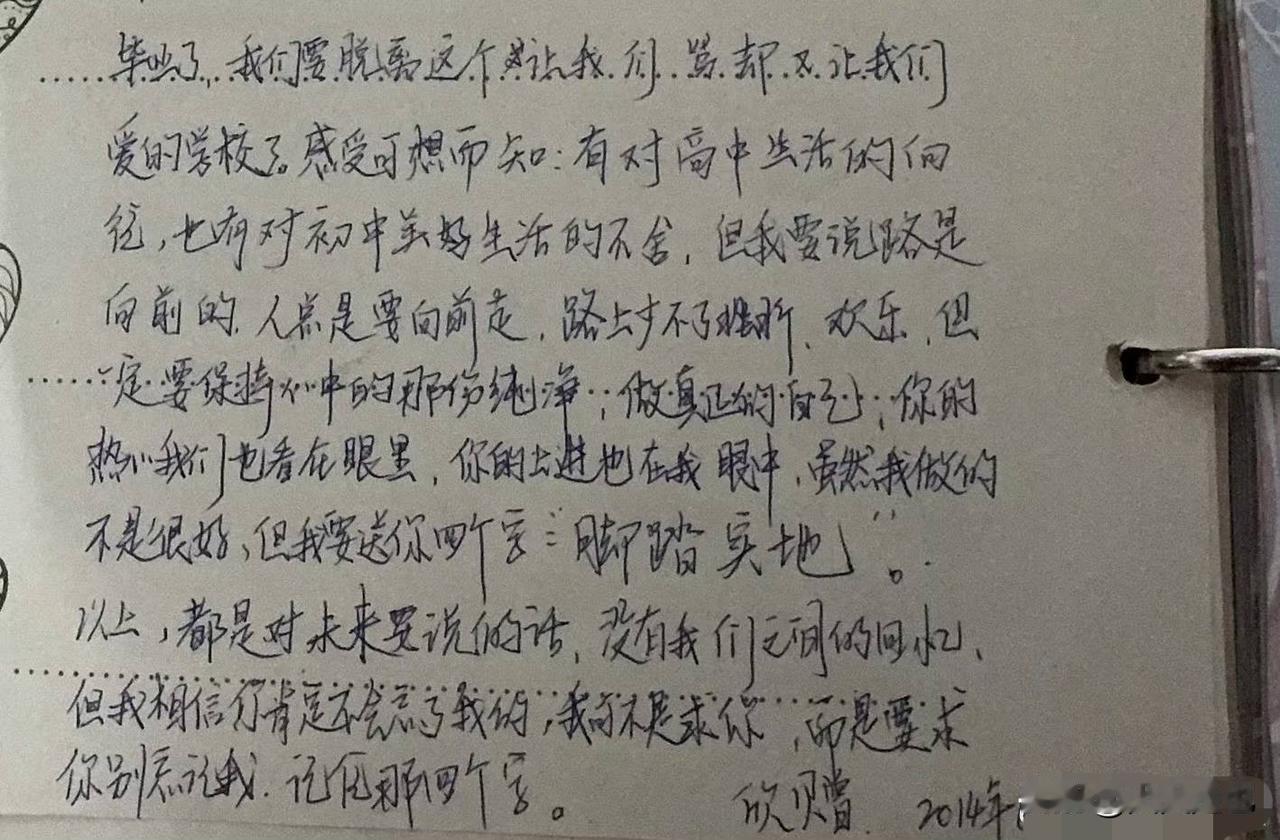 毕业了,我们要脱离这个让我们骂却又让我们
爱的学校了。感受可想而知:有对高中生活的向
往,也有对初中美好生活的不舍,但我要说路是
向前的,人总是要向前走,路上少不了挫折、欢乐,但
一定要保持心中的那份纯净,做真正的自己,你的
热心我们也看在眼里,你的上进也在我眼中,虽然我做的
不是很好,但我要送你四个字:“脚踏实地”。
以上,都是对未来要说的话,没有我们之间的回忆,
但我相信你肯定不会忘了我的,我可不是求你,而是要求
你别忘记我,记住那四个字。
欣赠 2014年